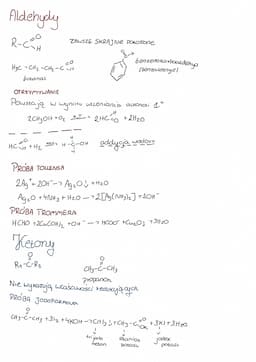 Aldehydy
R-C=O H ZAWSZE SKRAJNIE POŁOŻONE
H₃C-CH₂-CH₂-C=O H
butanal
benzenokarboaldehyd
(benzaldehyd)
OTRZYMYWANIE
Powstają w wyniku utleniania alkoholi 1°
2CH₃OH + O₂ → 2HC=O H + 2H₂O
HC=O H + H₂ → H-C-OH addycja wodoru
PRÓBA TOLLENSA
2Ag⁺ + 2OH⁻ → Ag₂O↓ + H₂O
Ag₂O + 4NH₃ + H₂O → 2[Ag(NH₃)₂]⁺ + 2OH⁻
PRÓBA TROMMERA
HCHO + 2Cu(OH)₂ + OH⁻ → HCOO⁻ + Cu₂O↓ + 3H₂O
Ketony
O O
R₁-C-R₂ CH₃-C-CH₃
propanon
Nie wykazują właściwości redukujących
PRÓBA JODOFORMOWA
CH₃-C-CH₃ + 3I₂ + 4KOH → CHI₃↓ + CH₃-C=O OK + 3KI + 3H₂O
trijodometan octan potasu jodek potasu